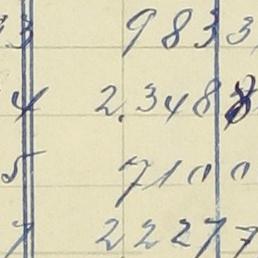 33 9833
4 2.3488
5 7100
7 22277